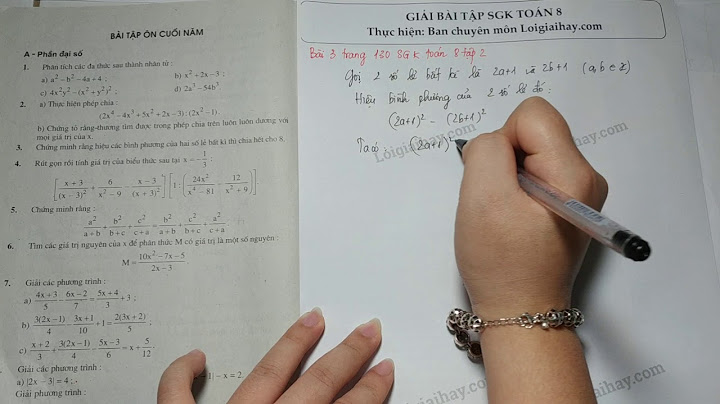 BÀI TẬP ÔN CUỐI NĂM
A - Phần đại số
1. Phân tích các đa thức sau thành nhân tử :
a) a² – b² – 4a + 4 ; b) x² + 2x – 3 ;
c) 4x²y² – (x² + y²)² ; d) 2a³ – 54b³.
2. a) Thực hiện phép chia :
(2x⁴ – 4x³ + 5x² + 2x – 3) : (2x² – 1).
b) Chứng tỏ rằng thương tìm được trong phép chia trên luôn luôn dương với
mọi giá trị của x.
3. Chứng minh rằng hiệu các bình phương của hai số lẻ bất kì thì chia hết cho 8.
4. Rút gọn rồi tính giá trị của biểu thức sau tại x = –1/3 :
[(x + 3)/(x – 3)² + 6/(x² – 9) – (x – 3)/(x + 3)²][1 : (24x²/(x⁴ – 81) – 12/(x² + 9))].
5. Chứng minh rằng :
a²/(a + b) + b²/(b + c) + c²/(c + a) = b²/(a + b) + c²/(b + c) + a²/(c + a).
6. Tìm các giá trị nguyên của x để phân thức M có giá trị là một số nguyên :
M = (10x² – 7x – 5)/(2x – 3)
7. Giải các phương trình :
a) (4x + 3)/5 – (6x – 2)/7 = (5x + 4)/3 + 3 ;
b) 3(2x – 1)/4 – (3x + 1)/10 + 1 = 2(3x + 2)/5 ;
c) (x + 2)/3 + 3(2x – 1)/4 – (5x – 3)/6 = x + 5/12.
Giải các phương trình :
a) |2x – 3| = 4 ; – 1| – x = 2
Giải phương trình :
GIẢI BÀI TẬP SGK TOÁN 8
Thực hiện: Ban chuyên môn Loigiaihay.com
Bài 3 trang 130 SGK toán 8 tập 2
Gọi 2 số lẻ bất kì là 2a+1 và 2b+1 (a, b ∈ Z)
Hiệu bình phương của 2 số lẻ đó :
(2a+1)² - (2b+1)²
Ta có (2a+1)²
Loigiaihay.com
Loigiaihay.com